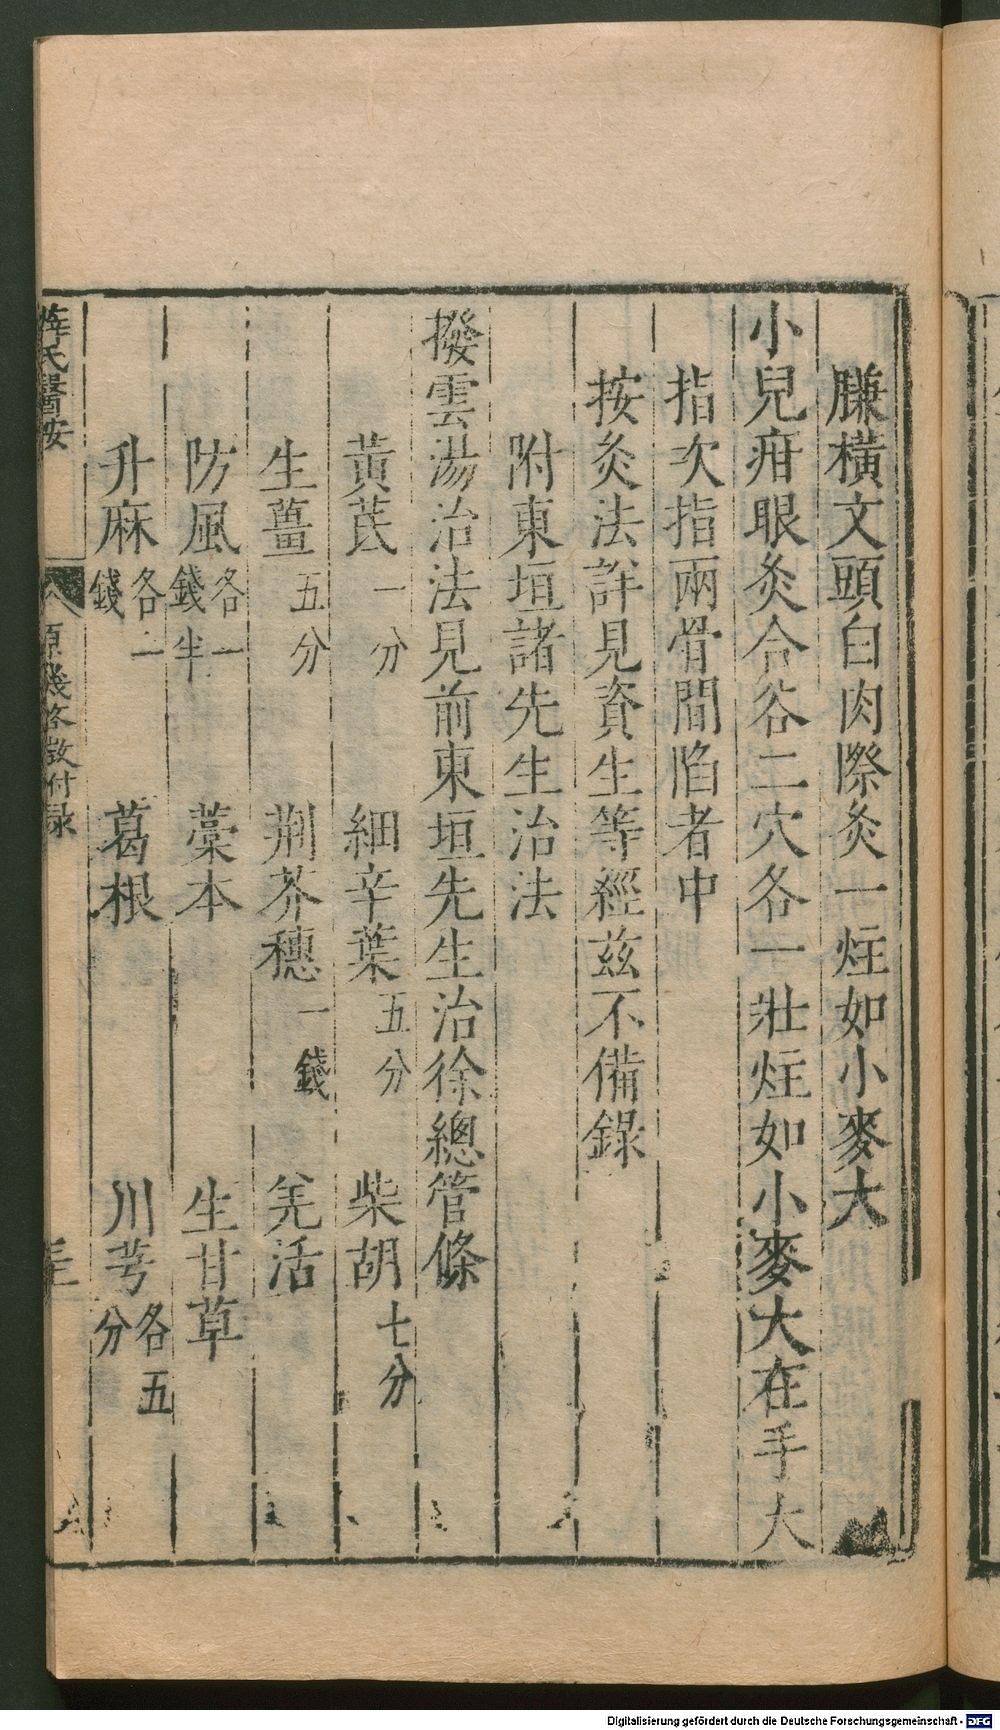 膁橫文頭白肉際灸一炷如小麥大
小兒疳眼灸合谷二穴各一壯炷如小麥大在手大
指次指兩骨間陷者中
按灸法詳見資生等經茲不備錄
附東垣諸先生治法
撥雲湯治法見前東垣先生治徐總管條
黃芪一分 細辛葉五分 柴胡七分
生薑五分 荆芥穗一錢 羌活
防風各一錢半 藁本 生甘草
升麻各二錢 葛根 川芎各五分
薛氏醫按 原幾啓微付录
Digitalisierung gefördert durch die Deutsche Forschungsgemeinschaft - DFG